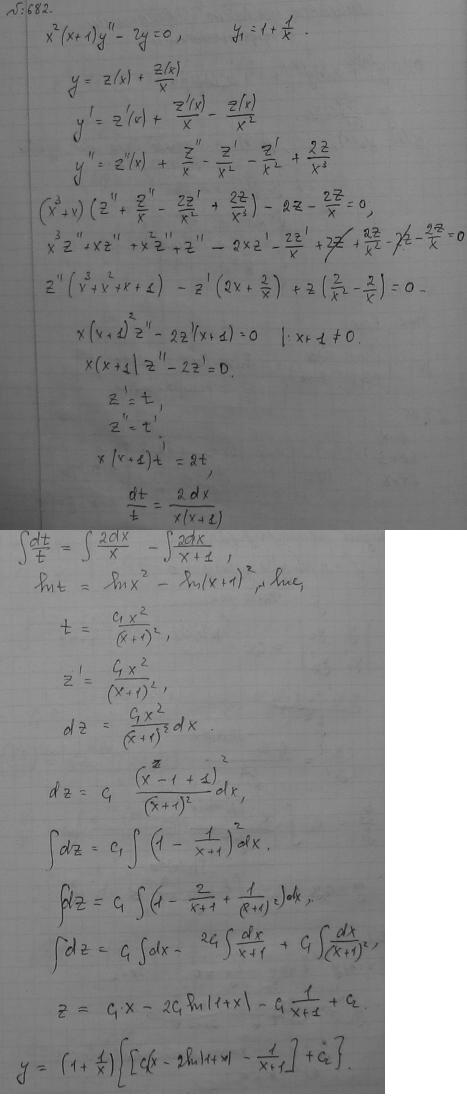 N:682.
x²(x+1)y'' - 2y = 0, y₁ = 1 + 1/x.
y = z(x) + z(x)/x
y' = z'(x) + z'(x)/x - z(x)/x²
y'' = z''(x) + z''/x - z'/x² - z'/x² + 2z/x³
(x³+x)(z'' + z''/x - 2z'/x² + 2z/x³) - 2z - 2z/x = 0,
x³z'' + xz'' + x²z'' + z'' - 2xz' - 2z'/x + 2z + 2z/x² - 2z - 2z/x = 0
z''(x³+x²+x+1) - z'(2x + 2/x) + z(2/x² - 2/x) = 0 -
x(x+1)²z'' - 2z'(x+1) = 0 |: x+1 ≠ 0.
x(x+1)z'' - 2z' = 0.
z' = t,
z'' = t'
x(x+1)t' = 2t,
dt/t = 2dx/x(x+1)
∫dt/t = ∫2dx/x - ∫2dx/x+1,
ln t = ln x² - ln(x+1)² + ln c₁
t = c₁x²/(x+1)²,
z' = c₁x²/(x+1)²,
dz = c₁x²/(x+1)² dx.
dz = c₁ (x-1+1)²/(x+1)² dx,
∫dz = c₁∫(1 - 1/x+1)²dx.
∫dz = c₁∫(1 - 2/x+1 + 1/(x+1)²)dx,
∫dz = c₁∫dx - 2c₁∫dx/x+1 + c₁∫dx/(x+1)²,
z = c₁·x - 2c₁ln|1+x| - c₁ 1/x+1 + c₂.
y = (1 + 1/x){[c₁(x - 2ln|1+x| - 1/x+1] + c₂}.